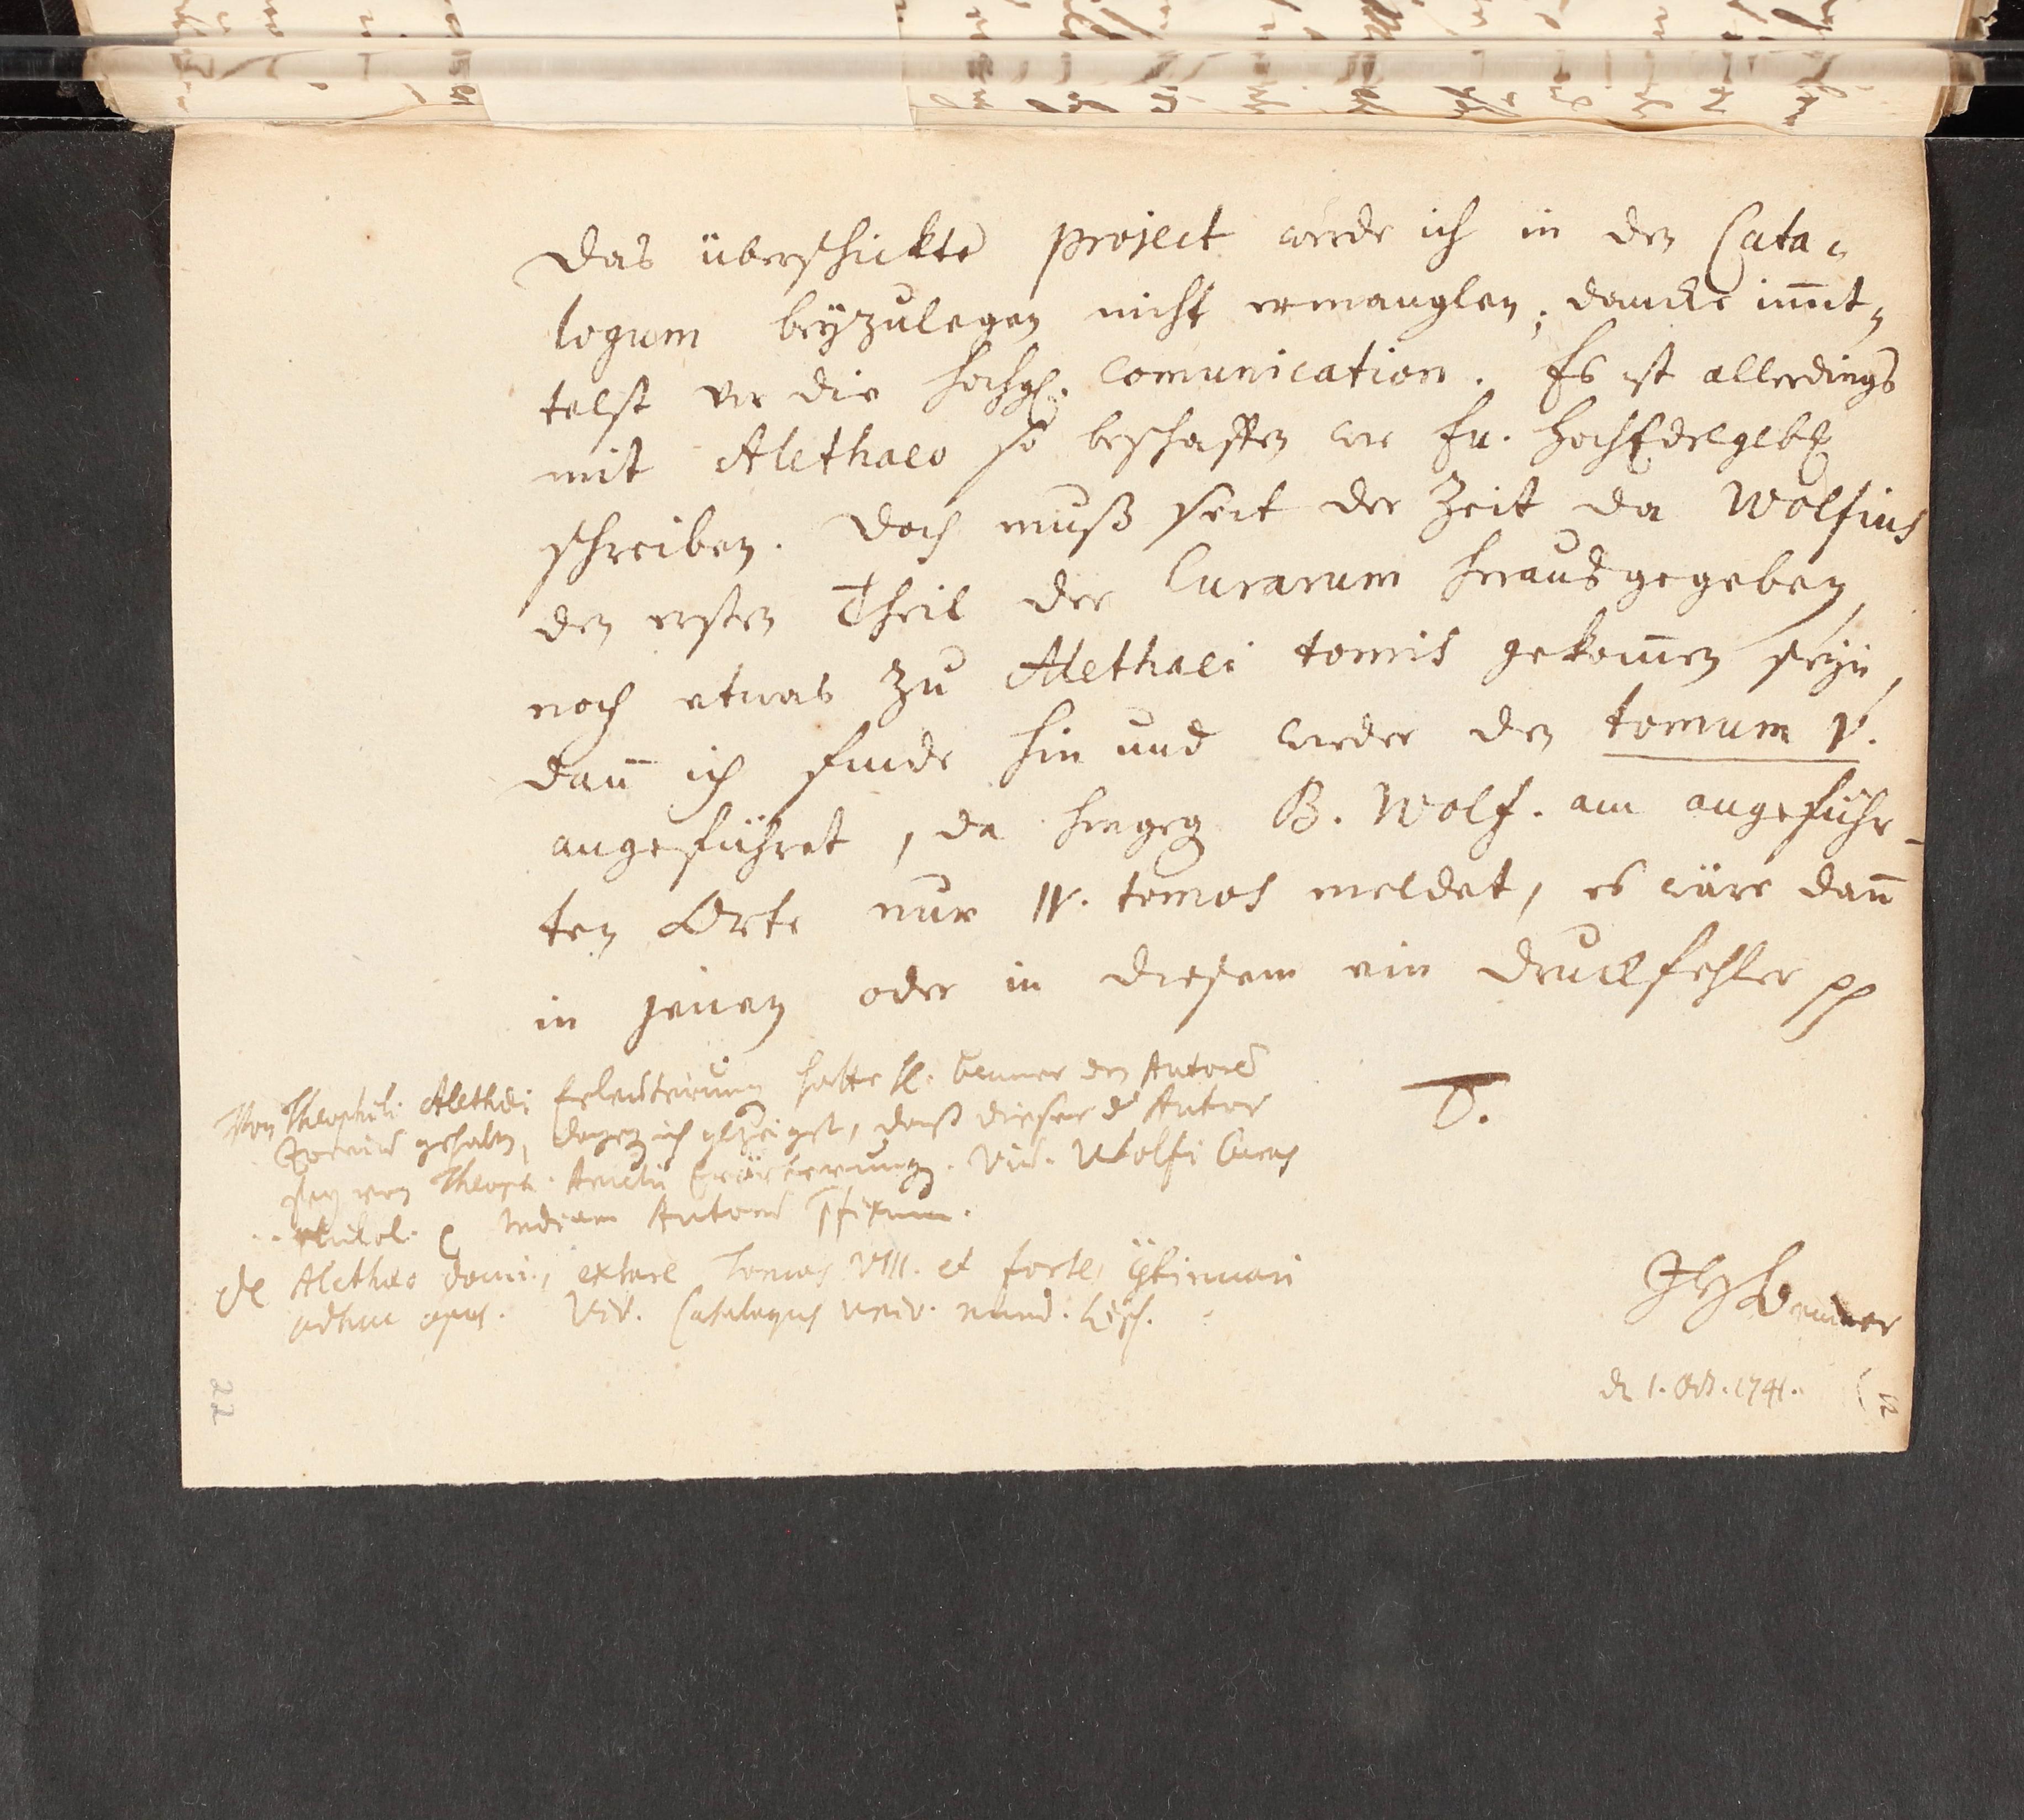 Das überschickte project werde ich in den Cata-
logum beyzulegen nicht ermanglen; dancke im̄it-
telst vor die hochg. com̄unication. Es ist allerdings
mit Alethaeo so beschaffen wie Eu. HochEdelgeb.
schreiben. Doch muß seit der Zeit da Wolfius
den ersten Theil der Curarum herausgegeben,
noch etwas zu Alethaei tomis gekom̄en seyn,
dan̄ ich finde hin und wieder den tomum V.
angeführet, da hingeg. B. Wolf. am angeführ-
ten Orte nur IV. tomos meldet, es wäre dan̄
in jenen oder in diesem ein Druckfehler pp
T.
Von Theophili Alethaei Erleuterung hatte H. Benner den Autorem
gehalten, dagegen ich gezeiget, daß dieser der Autor
sey von Theoph. Erörterung. Vid. Wolfi Curas
philol. Indicem Autorum
de Alethaeo extare Tomos VIII. et forte
adhuc opus. Vid. Catalogus univ. nund. Lips.
JHBenner
d. 1. Oct. 1741.
22